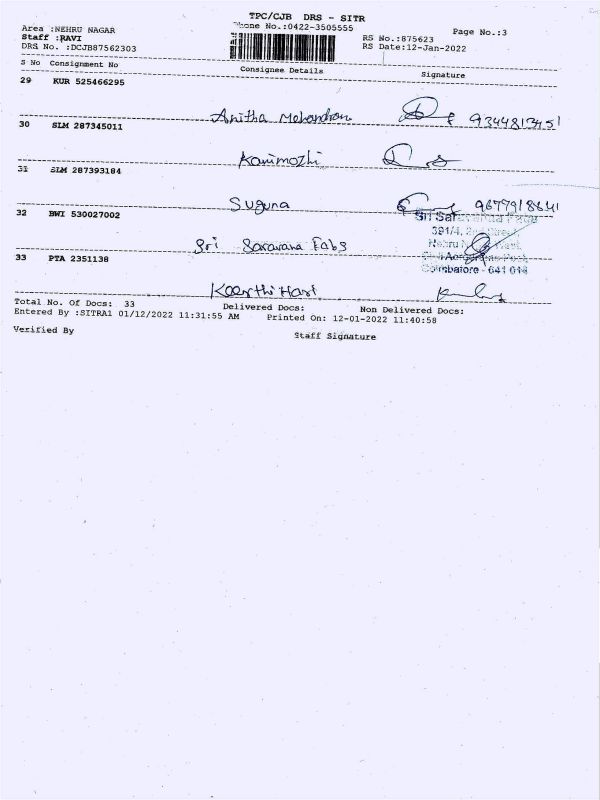 TPC/CJB DRS - SITR
Area :NEHRU NAGAR
Phone No.:0422-3505555
Page No.:3
Staff :RAVI
RS No.:875623
DRS No. :DCJB87562303
RS Date:12-Jan-2022
S No Consignment No Consignee Details Signature
29 KUR 525466295
Anitha Mahendran
30 SLM 287345011
Kanimozhi
31 SLM 287393184
Suguna
32 BWI 530027002
Sri Saravana Fabs
391/4, 2nd Street
Coimbatore - 641 014
33 PTA 2351138
Keerthi Hari
Total No. Of Docs: 33 Delivered Docs: Non Delivered Docs:
Entered By :SITRA1 01/12/2022 11:31:55 AM Printed On: 12-01-2022 11:40:58
Verified By Staff Signature